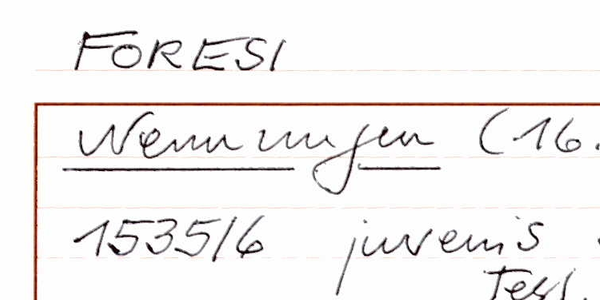 FORESI
Nennungen (16.
1535/6 juvenis
Test.